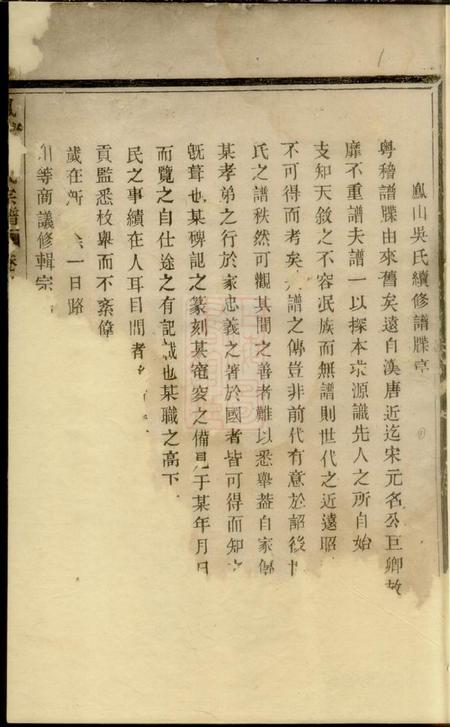 鳳山吳氏續修譜牒序
粵稽譜牒由來舊矣遠自漢唐近迄宋元名公巨卿故
靡不重譜夫譜一以探本求源識先人之所自始
支知天敘之不容泯族而無譜則世代之近遠昭
不可得而考矣譜之傳豈非前代有意於詔後
氏之譜秩然可觀其間之善者難以悉舉蓋自家傳
某孝弟之行於家忠義之著於國者皆可得而知
既葬也某碑記之篆刻某窀穸之備見于某年月日
而覽之自仕途之有記誠也某職之高下
民之事績在人耳目間者
貢監悉枚舉而不紊偉
歲在 一日路
等商議修輯宗